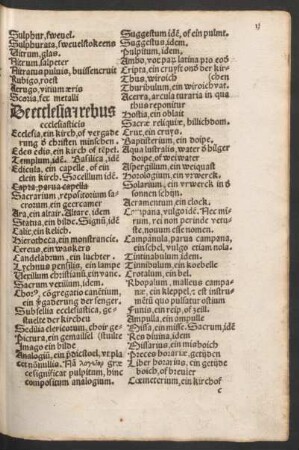 Sulphur, sweuel.
Sulphurata, sweuelstokeens
Vitrum, glas.
Nitrum, salpeter
Nitratus puluis, bussencruit
Rubigo, roest
Aerugo, vitium æris
Scoria, fec metalli
De ecclesiæ rebus
ecclesiasticis
Ecclesia, ein kirch, of vergade
rung d christen minschen
Eden edis, ein kirch of tēpel.
Templum, idē. Basilica, idē
Edicula, ein capelle, of ein
clein kirch. Sacellum idē
Capta: parua capella
Sacrarium, repositorium sa
crorum geercamer
Ara, ein altair. Altare. idem
Statua, ein bilde. Signū idē
Calix, ein kelich.
Hierotheca, ein monstrancie.
Cereus, ein wasskers
Candelabrum, ein luchter
Lychnus pensilis, ein lampe
Vexillum christianū, ein vane.
Sacrum vexillum, idem.
Chorꝰ, cōgregatio canētium,
ein vgadering der senger.
Subsellia ecclesiastica, ge
stuelte der kirchen
Sedilia clericorum, choir ge
Pictura, ein gemailsel stuilte
Imago ein bilde
Analogiū, ein pdicstoel, vt pla
cet nōnullis. Nā λογεῖον græ
ce significat pulpitum, hinc
compositum analogium.
Suggestum idē, of ein pulmt.
Suggestus, idem.
Pulpitum, idem.
Ambo, vox parū latina pro eodē
Cripta, ein cruyft onð der kir
Thus, wiroich schen
Thuribulum, ein wiroichvat
Acerra, arcula turaria in qua
thus reponitur
Hostia, ein oblait
Sacræ reliquiæ, hillichdom.
Crux, ein cruys.
Baptisterium, ein doipe.
Aqua lustralis, water ð hilliger
doipe, of weiwater
Aspergillum, ein wiequast
Horologium, ein vrwerck.
Solarium, ein vrwerck in ð
sonnen schijn.
Aeramentum, ein clock.
Campana, vulgo idē. Nec mi
rum, rei non perinde vetu
ste, nouum esse nomen.
Campanula, parua campana,
ein schel, vulgo etiam nola.
Tintinabulum idem.
Tintinabulum, ein koebelle
Crotalum, ein bel.
Rhopalum, malleus campa
næ, ein kleppel, est instru
mētū quo pulsatur ostium
Funis, ein reip, of zeyll.
Ampulla, ein ampulle
Missa, ein misse. Sacrum, idē
Res diuina, idem
Missarius, ein misboich
Preces horariæ, getijden
Liber horarius, ein getijde
boich, of breuier
Cœmeterium, ein kirchof
c